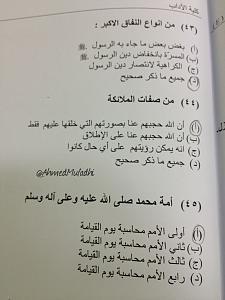 كلية الآداب
(٤٣) من أنواع النفاق الأكبر :
أ) بغض بعض ما جاء به الرسول
ب) المسرّة بانخفاض دين الرسول
ج) الكراهية لانتصار دين الرسول
د) جميع ما ذكر صحيح
(٤٤) من صفات الملائكة
أ) أن الله حجبهم عنا بصورتهم التي خلقها عليهم فقط
ب) أن الله حجبهم عنا على الإطلاق
ج) انه يمكن رؤيتهم على أي حال كانوا
د) جميع ما ذكر صحيح
@AhmedMuladhi
(٤٥) أمة محمد صلى الله عليه وعلى آله وسلم
أ) أولى الأمم محاسبة يوم القيامة
ب) ثاني الأمم محاسبة يوم القيامة
ج) ثالث الأمم محاسبة يوم القيامة
د) رابع الأمم محاسبة يوم القيامة